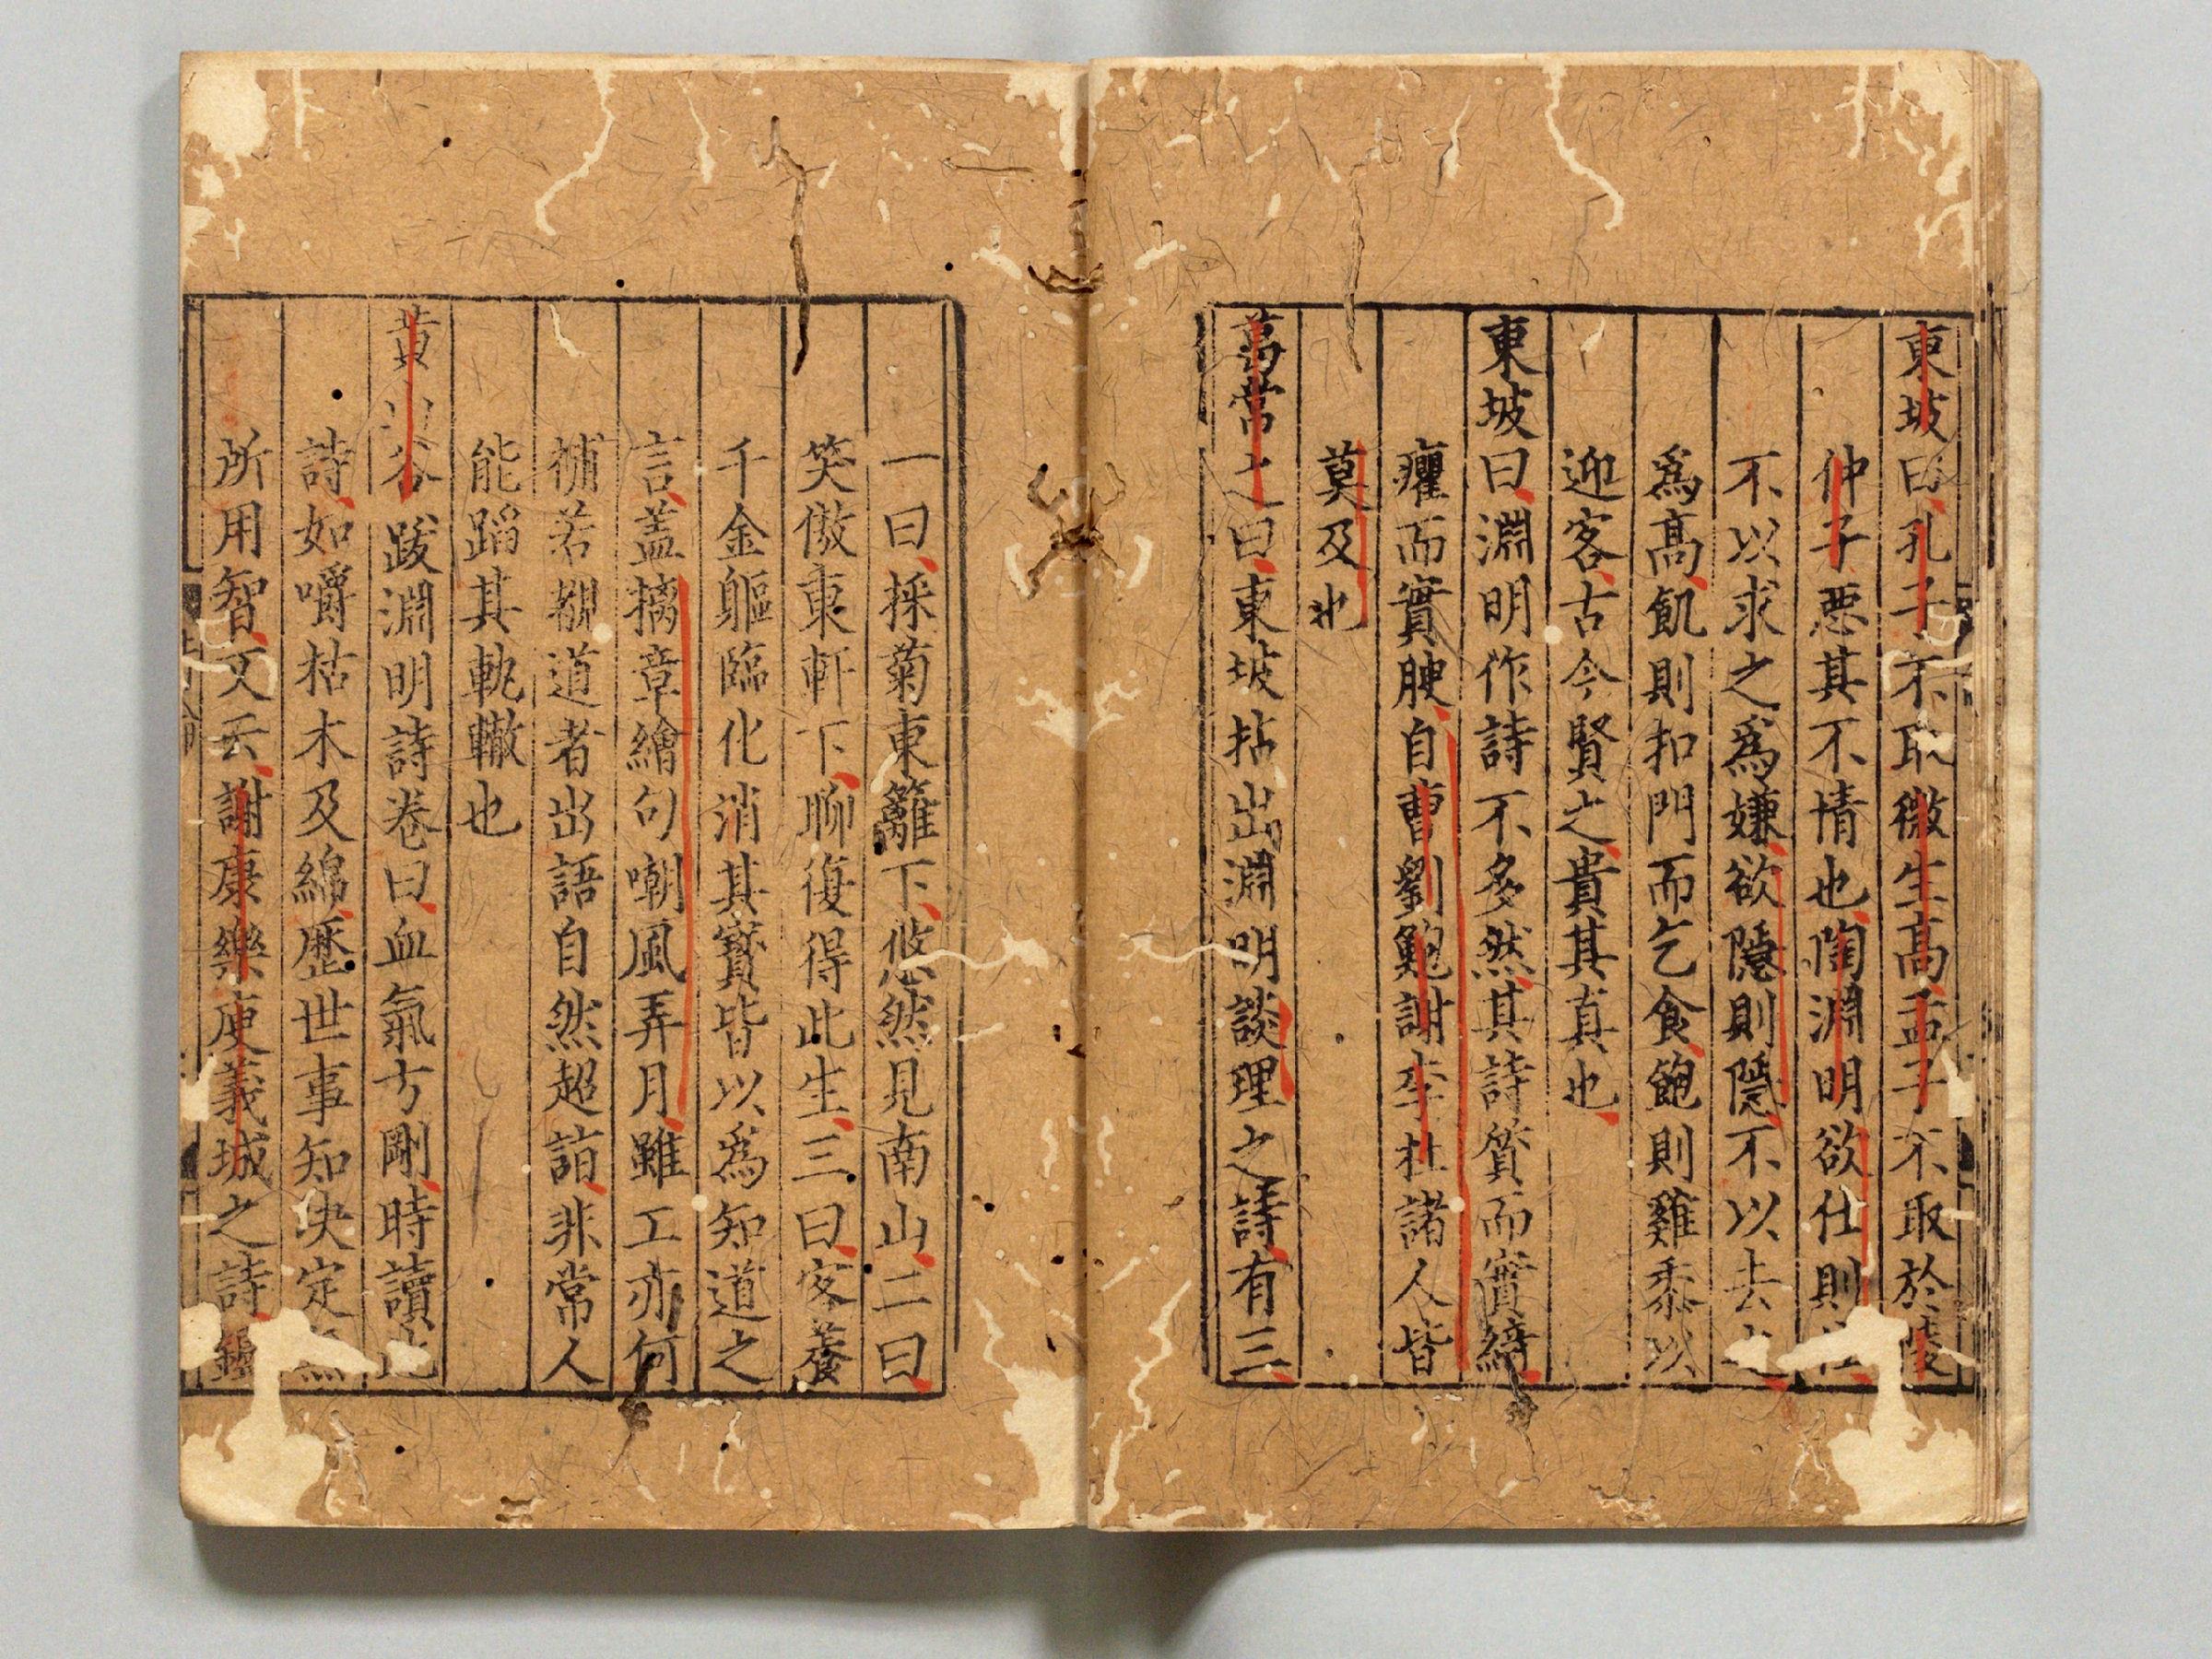 東坡曰孔子不取微生高孟子不取於陵
仲子惡其不情也陶淵明欲仕則仕
不以求之爲嫌欲隱則隱不以去之
爲高飢則扣門而乞食飽則雞黍以
迎客古今賢之貴其真也
東坡曰淵明作詩不多然其詩質而實綺
癯而實腴自曹劉鮑謝李杜諸人皆
莫及也
葛常之曰東坡拈出淵明談理之詩有三
一曰採菊東籬下悠然見南山二曰
笑傲東軒下聊復得此生三曰客養
千金軀臨化消其寶皆以爲知道之
言盖摛章繪句嘲風弄月雖工亦何
補若覩道者出語自然超詣非常人
能蹈其軌轍也
黄山谷跋淵明詩卷曰血氣方剛時讀此
詩如嚼枯木及綿歷世事知決定無
所用智又云謝康樂庾義城之詩鑪